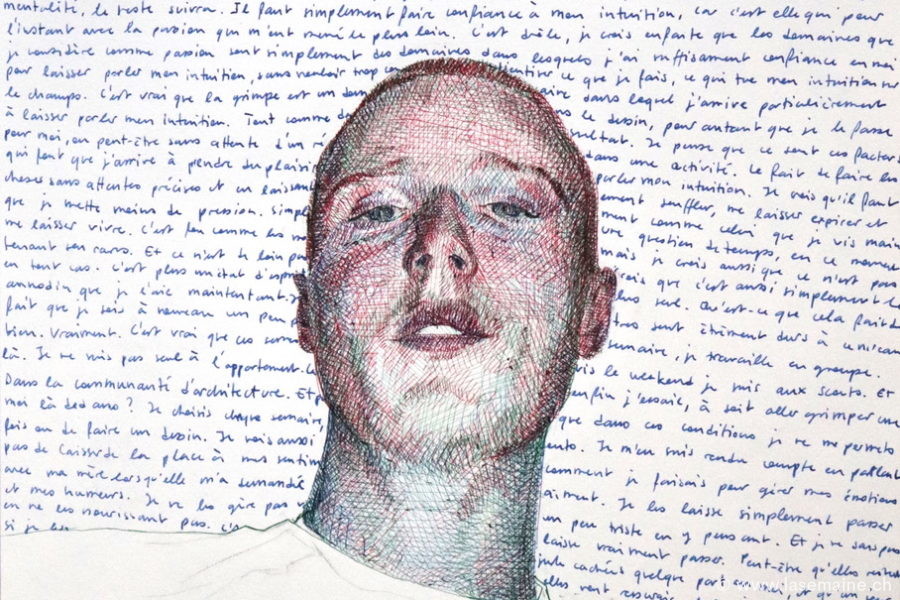 mentalité, le reste suivra. Il faut simplement faire confiance à mon intuition, car c'est elle qui pour
l'instant avec la passion qui m'ont mené le plus loin. C'est drôle, je crois enfaite que les domaines que
je considère comme passion sont simplement des domaines dans lesquels j'ai suffisamment confiance en moi
pour laisser parler mon intuition, sans vouloir trop ce que je fais, ce qui tue mon intuition sur
le champs. C'est vrai que la grimpe est un dom aire dans lequel j'arrive particulièrement
à laisser parler mon intuition. Tout comme de le dessin, pour autant que je le fasse
pour moi, ou peut-être sans attente d'un re sultat. Je pense que ce sont ces facteurs
qui font que j'arrive à prendre du plaisir dans une activité. Le fait de faire les
choses sans attentes précises et en laissant parler mon intuition. Je crois qu'il faut
que je mette moins de pression. simple ement souffler, me laisser expirer et
me laisser vivre. C'est peu comme les mo ment comme celui que je vis main
tenant ses rares. Et ce n'est de loin pa une question de temps, en ce moment
en tout cas. C'est plus un état d'esp mais je crois aussi que ce n'est pas
annodin que je l'aie maintentant. crois que c'est aussi simplement le
fait que je sois à nouveau un peu p lus seul. Qu'est-ce que cela fait de
bien. Vraiment. C'est vrai que ces sem sont
là. Je ne suis pas seul à l'appartement. semaine, je travaille en groupe.
Dans la communauté d'architecture. Et p le weekend je suis aux scouts. Et
moi là dedans ? Je choisis chaque semaine, enfin j'essaie, à soit aller grimper une
fois ou de faire un dessin. Je vois aussi que dans ces conditions je ne me permets
pas de laisser de la place à mes sentim ents. Je m'en suis rendu compte en parlant
avec ma mère lorsqu'elle m'a demandé comment je faisais pour gérer mes émotions
et mes humeurs. Je ne les gère pas aiment. Je les laisse simplement passer
en ne les nourrissant pas. un peu triste en y pensant. Et je ne sais pas
si je les laisse vraiment passer. Peut-être qu'elles
cachées quelque part
www.lasemaine.ch